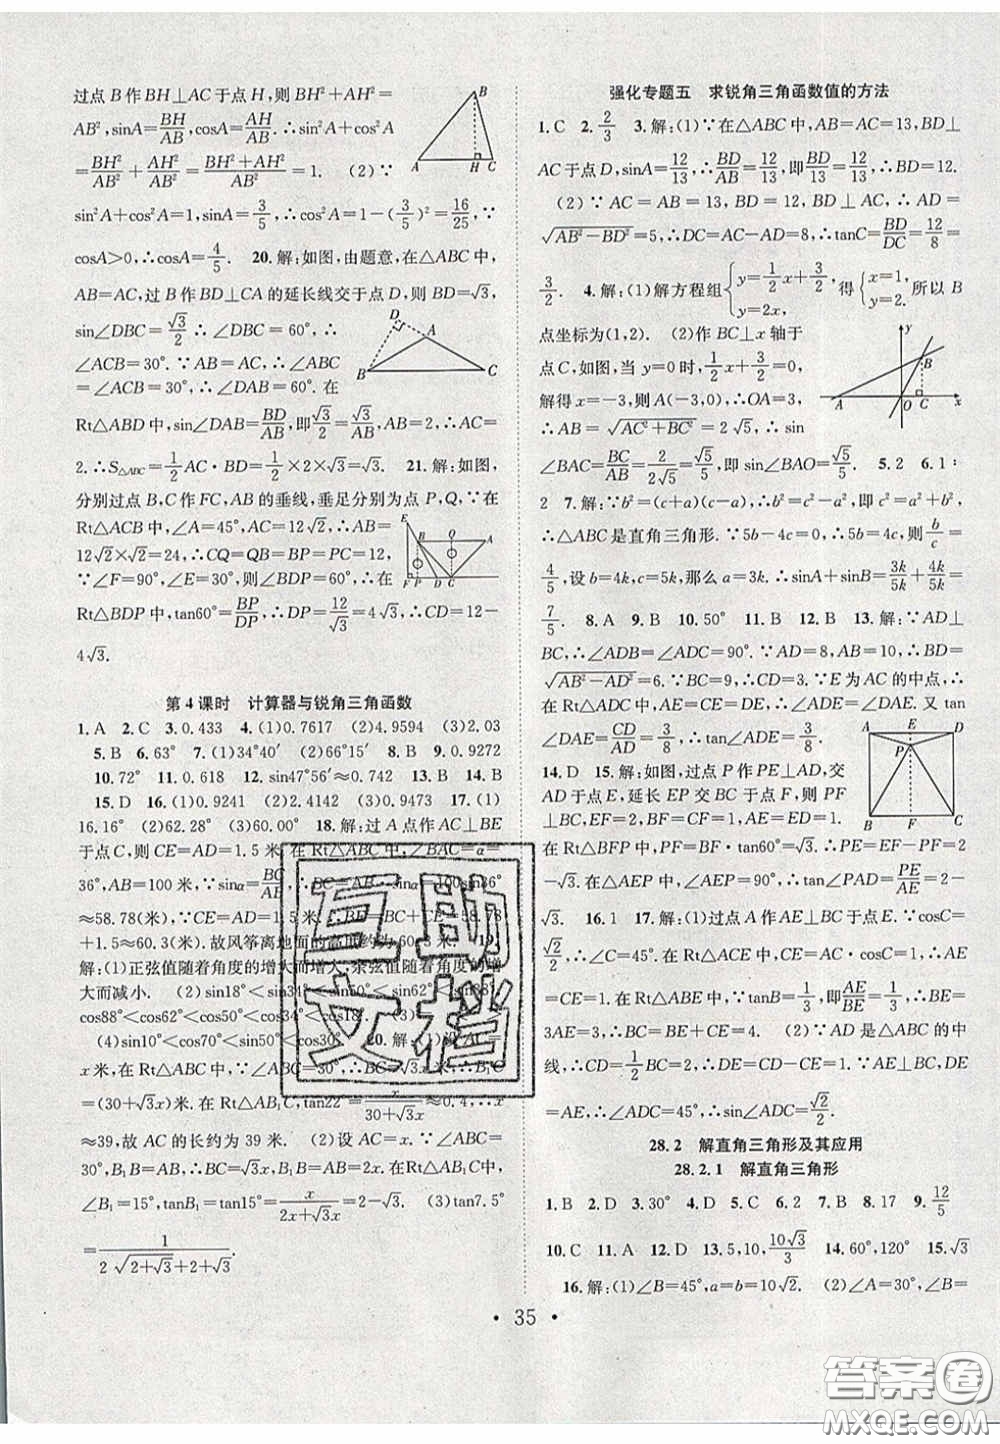 过点 B 作 BH⊥AC 于点 H,则 BH²+AH²=
AB²,sinA=BH/AB,cosA=AH/AB.∴sin²A+cos²A
=BH²/AB²+AH²/AB²=(BH²+AH²)/AB²=1. (2)∵
sin²A+cos²A=1,sinA=3/5,∴cos²A=1-(3/5)²=16/25,∵
cosA>0,∴cosA=4/5. 20.解:如图,由题意,在△ABC 中,
AB=AC,过 B 作 BD⊥CA 的延长线交于点 D,BD=√3,
sin∠DBC=√3/2 ∴∠DBC=60°,∴
∠ACB=30°.∵AB=AC,∴∠ABC
=∠ACB=30°,∴∠DAB=60°.在
Rt△ABD 中,∵sin∠DAB=BD/AB,即√3/2=√3/AB,AB=2,∴AC=
2.∴S△ABC=1/2 AC·BD=1/2×2×√3=√3. 21.解:如图,
分别过点 B,C 作 FC,AB 的垂线,垂足分别为点 P,Q,∵在
Rt△ACB 中,∠A=45°,AC=12√2,∴AB=
12√2×√2=24,∴CQ=QB=BP=PC=12,
∵∠F=90°,∠E=30°,则∠BDP=60°,∴在
Rt△BDP 中,tan60°=BP/DP,∴DP=12/√3=4√3,∴CD=12-
4√3.
A H C B
D A B C
E B Q A F P D C
第 4 课时 计算器与锐角三角函数
1.A 2.C 3.0.433 4.(1)0.7617 (2)4.9594 (3)2.03
5.B 6.63° 7.(1)34°40′ (2)66°15′ 8.B 9.0.9272
10.72° 11.0.618 12.sin47°56′≈0.742 13.B 14.B
15.D 16.(1)0.9241 (2)2.4140 (3)0.9473 17.(1)
16.16° (2)62.28° (3)60.00° 18.解:过 A 点作 AC⊥BE
于点 C,则 CE=AD=1.5 米.在 Rt△ABC 中,∠BAC=α=
36°,AB=100 米,∵sinα=BC/AB,∴BC=AB·sinα=100sin36°
≈58.78(米),∵CE=AD=1.5 米,∴BE=BC+CE=58.78
+1.5≈60.3(米).故风筝离地面的高度约为 60.3 米. 19.
解:(1)正弦值随着角度的增大而增大,余弦值随着角度的增
大而减小. (2)sin18°<sin34°<sin50°<sin62°<sin88°
cos88°<cos62°<cos50°<cos34°<cos18° (3)
(4)sin10°<cos70°<sin50°<cos30° 20.解:(1)设 AC=
x 米,在 Rt△ABC 中,∵∠ABC=45°,∴BC=AC=x 米,∴B₁C
=(30+√3x)米.在 Rt△AB₁C,tan22°=x/(30+√3x)≈0.4,∴x
≈39,故 AC 的长约为 39 米. (2)设 AC=x.∵∠ABC=
30°,B₁B=AB=2x,BC=√3x,在 Rt△AB₁C 中,
∠B₁=15°,tanB₁=x/(2x+√3x)=2-√3. (3)tan7.5°
=1/(2√(2+√3)+2+√3).
强化专题五 求锐角三角函数值的方法
1.C 2.2/3 3.解:(1)∵在△ABC 中,AB=AC=13,BD⊥
AC 于点 D,sinA=12/13,∴BD/AB=12/13,即BD/13=12/13,∴BD=12.
(2)∵AC=AB=13,BD=12,BD⊥AC,∴AD=
√(AB²-BD²)=5,∴DC=AC-AD=8,∴tanC=BD/DC=12/8=
3/2. 4.解:(1)解方程组{y=1/2x+3/2, y=2x, 得{x=1, y=2. 所以 B
点坐标为(1,2). (2)作 BC⊥x 轴于
点 C,如图,当 y=0 时,1/2x+3/2=0,
解得 x=-3,则 A(-3,0),∴OA=3,
∴AB=√(AC²+BC²)=2√5,∴sin
∠BAC=BC/AB=2/2√5=√5/5,即 sin∠BAO=√5/5. 5.2 6.1:
2 7.解:∵b²=(c+a)(c-a),∴b²=c²-a²,即 c²=a²+b²,
∴△ABC 是直角三角形.∵5b-4c=0,∴5b=4c,则b/c=
4/5,设 b=4k,c=5k,那么 a=3k.∴sinA+sinB=3k/5k+4k/5k=
7/5. 8.A 9.B 10.50° 11.B 12.B 13.解:∵AD⊥
BC,∴∠ADB=∠ADC=90°.∵AB=10,AD=8,∴BD=
√(AB²-AD²)=6.∵BC=9,∴CD=3.∵AC 的中点,∴
在 Rt△ADC 中,AE=CE=DE.∴∠DAE=∠ADE.又 tan
∠DAE=CD/AD=3/8,∴tan∠ADE=3/8.
14.D 15.解:如图,过点 P 作 PE⊥AD,交
AD 于点 E,延长 EP 交 BC 于点 F,则 PF
⊥BC,EF=2,BF=1,∠PBF=60°,∴
在 Rt△BFP 中,PF=BF·tan60°=√3.∴PE=EF-PF=2
-√3.∴在△AEP 中,AE=1,∴tan∠APE 的余切值为 PE/AE=2-
√3. 16.1 17.解:(1)过点 A 作 AE⊥BC 于点 E.∵cosC=
√2/2,∴∠C=45°.在 Rt△ACE 中,CE=AC·cosC=1,∴AE
=CE=1.在 Rt△ABE 中,∵tanB=1/3,即AE/BE=1/3,∴BE=
3AE=3,∴BC=BE+CE=4. (2)∵AD 是△ABC 的中
线,∴CD=1/2BC=2,∴DE=CD-CE=1.∵AE⊥BC,DE
=AE,∴∠ADC=45°,∴sin∠ADC=√2/2.
y B A O C x
A E D P B F C
28.2 解直角三角形及其应用
28.2.1 解直角三角形
1.B 2.D 3.30° 4.D 5.C 6.2 7.B 8.17 9.12/5
10.C 11.A 12.D 13.5,10,10√3/3 14.60°,120° 15.√3
16.解:(1)∠B=45°,a=b=10√2. (2)∠A=30°,∠B=
· 35 ·
互助
文档
答案圈
MXQE.COM